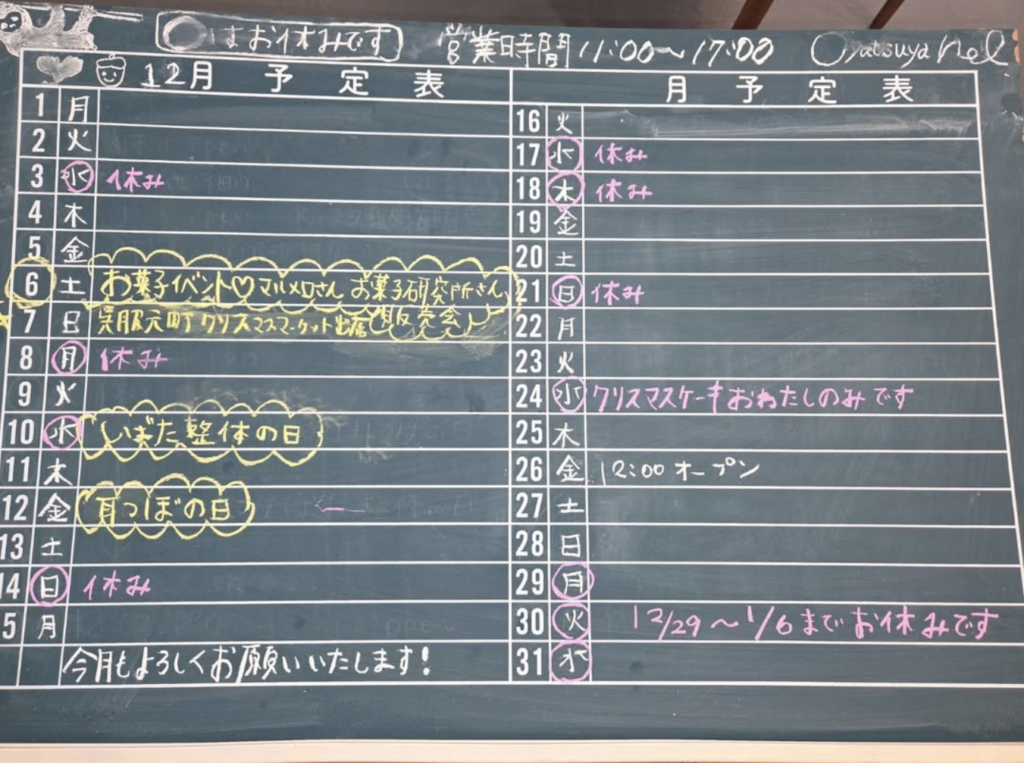 ◯はお休みです 営業時間 11:00〜17:00 Oyatsuya nel
12月 予定表
1 月
2 火
3 水 休み
4 木
5 金
6 土 お菓子イベント♡マルメロさん お菓子研究所さん
7 日 呉服元町クリスマスマーケット出店 販売会♪
8 月 休み
9 火
10 水 いばた整体の日
11 木
12 金 耳つぼの日
13 土
14 日 休み
5 月
今月もよろしくお願いいたします!
月 予定表
16 火
17 水 休み
18 木 休み
19 金
20 土
21 日 休み
22 月
23 火
24 水 クリスマスケーキおわたしのみです
25 木
26 金 12:00 オープン
27 土
28 日
29 月
30 火 12/29〜1/6までお休みです
31 水